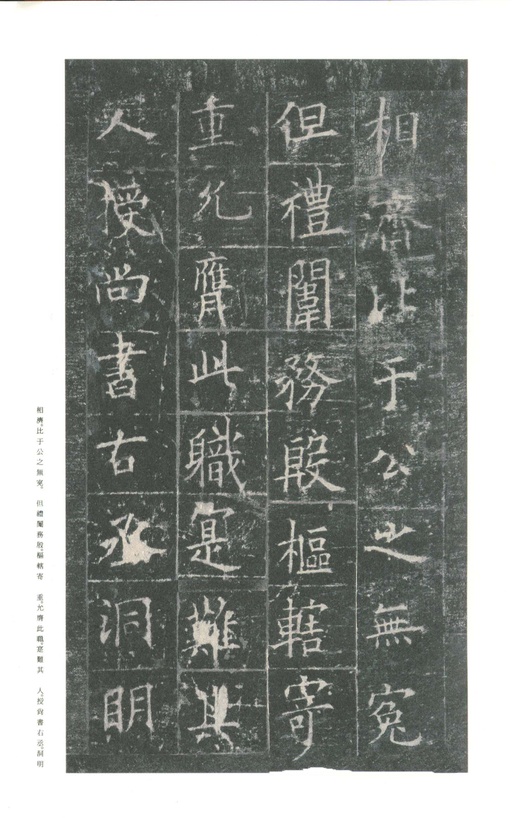 相濟比于公之無冤
但禮闈務殷樞轄寄
重允膺此職寔難其
人授尚書右丞洞明
相濟比于公之無冤。但禮闈務殷樞轄寄 重允膺此職寔難其 人授尚書右丞洞明